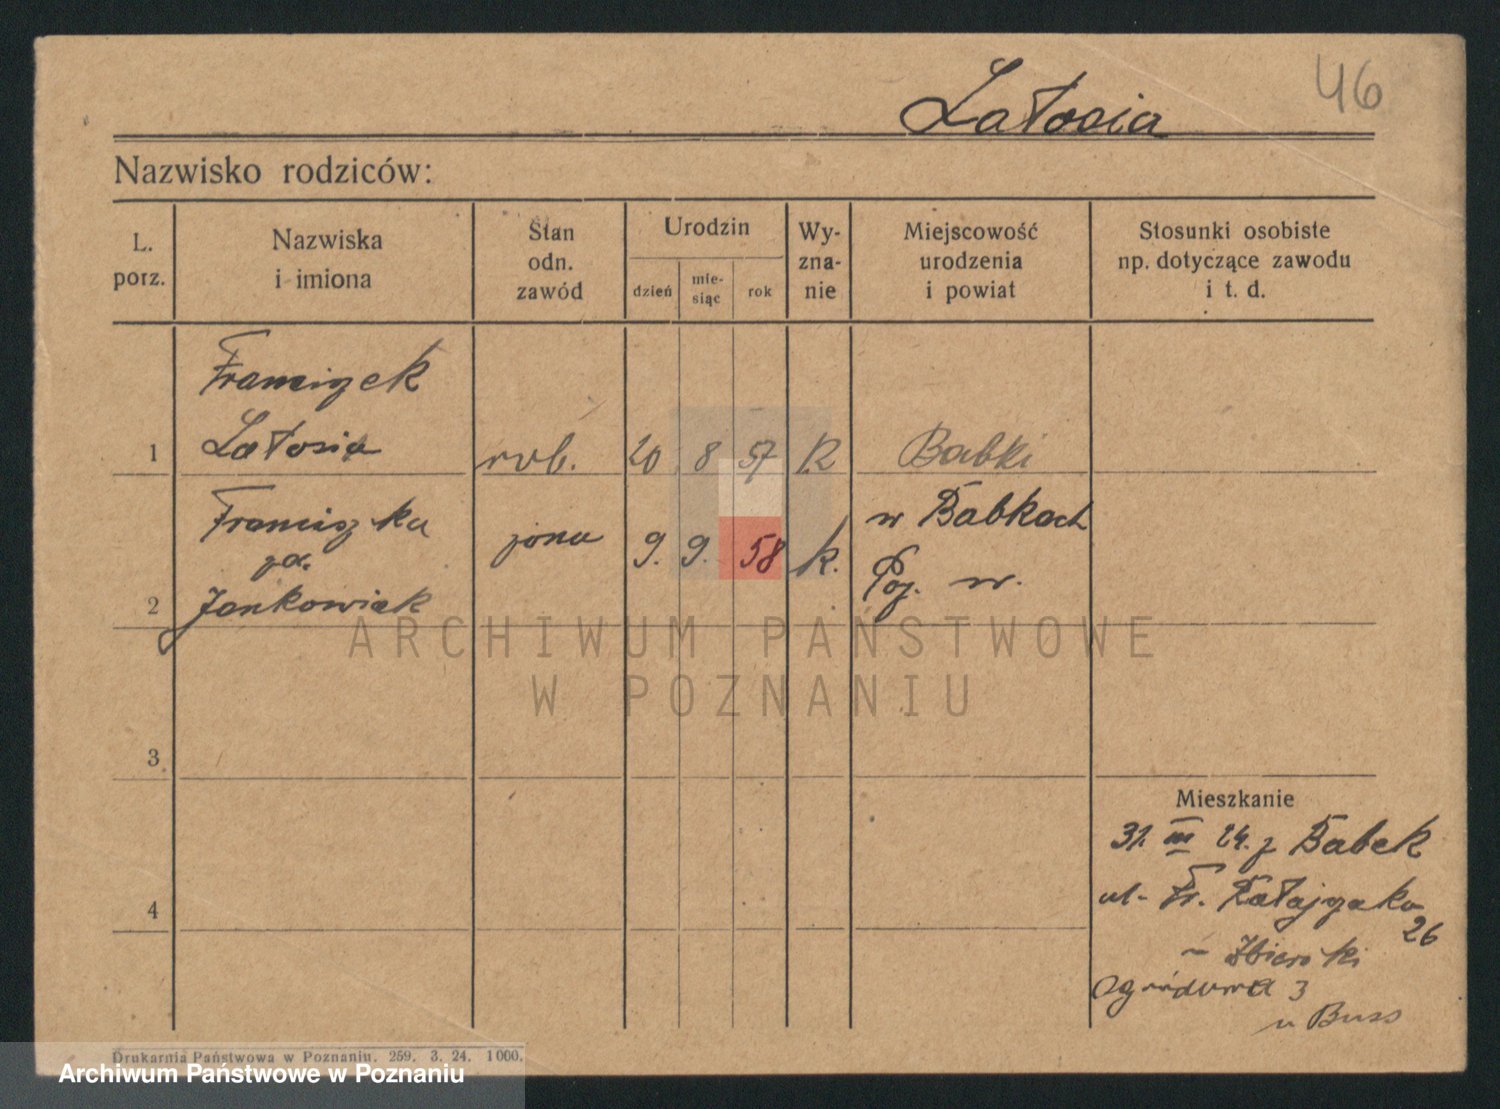 46
Latosia
Nazwisko rodziców:
L. porz.
Nazwiska i imiona
Stan odn. zawód
Urodzin
dzień
mie-
siąc
rok
Wy-
zna-
nie
Miejscowość urodzenia i powiat
Stosunki osobiste np. dotyczące zawodu i t. d.
Franciszek
1 Latosia rob. 20 8 57 R Babki
Franciszka żona 9. 9. 58 k. w Babkach
Poz. w.
2 Jankowiak
3
4
Mieszkanie
31. III 24. z Babek
ul. Fr. Ratajczaka
26
Ogrodowa 3
u Buss
Drukarnia Państwowa w Poznaniu. 259. 3. 24. 1000.
ARCHIWUM PAŃSTWOWE
W POZNANIU
Archiwum Państwowe w Poznaniu